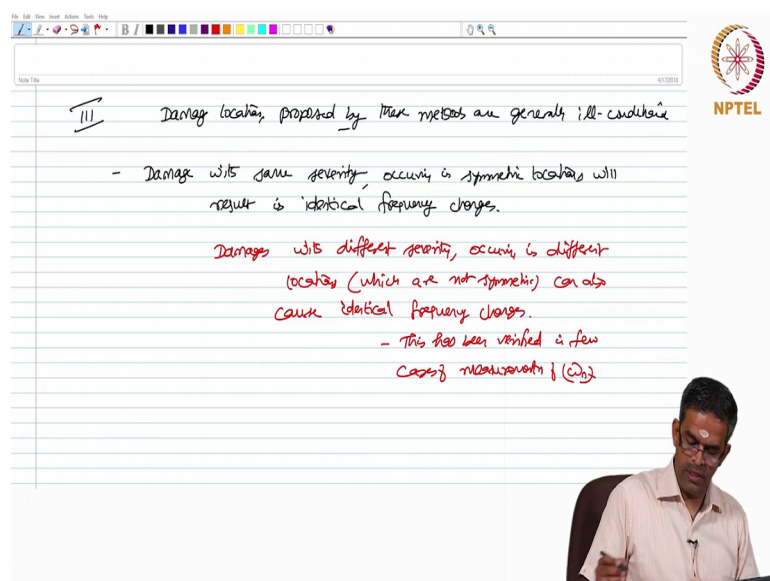 File Edit View Insert Actions Tools Help
B I
Note Title
4/17/2018
NPTEL
III Damage location, proposed by these methods are generally ill-conditioned
- Damage with same severity, occurring in symmetric locations will
result in identical frequency changes.
Damages with different severity, occurring in different
locations (which are not symmetric) can also
cause identical frequency changes.
- This has been verified in few
cases of measurements of {ωn}